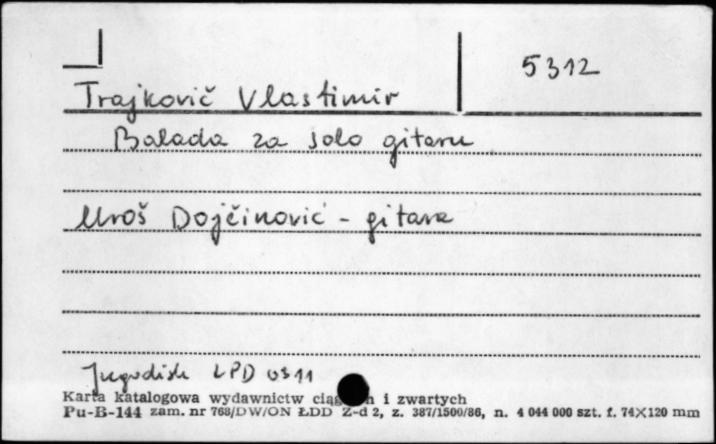 5312
Trajkovič Vlastimir
Balada za solo gitaru
Uroš Dojčinović - gitara
Jugodisk LPD 0311
Karta katalogowa wydawnictw i zwartych
Pu-B-144 zam. nr 768/DW/ON ŁDD Z-d 2, z. 387/1500/86, n. 4 044 000 szt. f. 74X120 mm